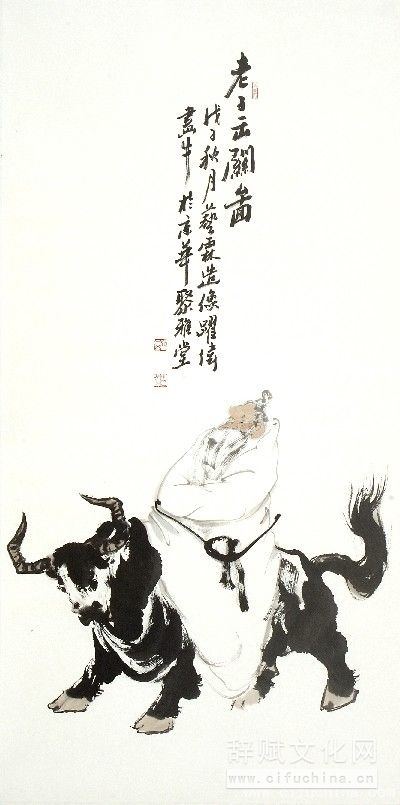 老子出關圖
戊子秋月藝霖造像躍倩
畫牛於京華聚雅堂
辞赋文化网
www.cifuchina.cn